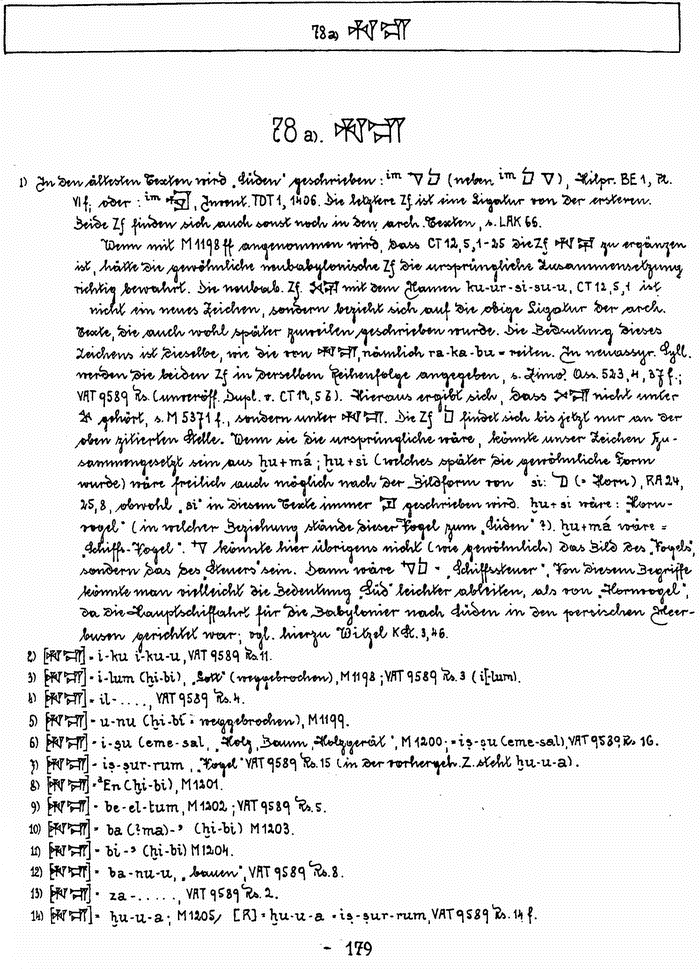 78a)
78 a).
1) In den ältesten Texten wird „Süden“ geschrieben : im (neben im ), Hilpr. BE 1, Pl.
VI f; oder : im , Invent. TDT 1, 1406. Die letztere Zf ist eine Ligatur von der ersteren.
Beide Zf finden sich auch sonst noch in den arch. Texten, s. LAK 66.
Wenn mit M 1198 ff angenommen wird, dass CT 12, 5, 1-25 die Zf zu ergänzen
ist, hätte die gewöhnliche neubabylonische Zf die ursprüngliche Zusammensetzung
richtig bewahrt. Die neubab. Zf. mit dem Namen ku-ur-si-su-u, CT 12, 5, 1 ist
nicht ein neues Zeichen, sondern bezieht sich auf die obige Ligatur der arch.
Texte, die auch wohl später zuweilen geschrieben wurde. Die Bedeutung dieses
Zeichens ist dieselbe, wie die von , nämlich ra-ka-bu = reiten. In neuassyr. Syll.
werden die beiden Zf in derselben Reihenfolge angegeben, s. Zimo. Ass. 523, 4, 37 f.;
VAT 9589 Rs. (unveröff. Dupl. v. CT 12, 5 b). Hieraus ergibt sich, dass nicht unter
gehört, s. M 5371 f., sondern unter . Die Zf findet sich bis jetzt nur an der
oben zitierten Stelle. Wenn sie die ursprüngliche wäre, könnte unser Zeichen zu-
sammengesetzt sein aus ḫu + má ; ḫu + si (welches später die gewöhnliche Form
wurde) wäre freilich auch möglich nach der Bildform von si: (= Horn), RA 24,
25, 8, obwohl „si“ in diesem Texte immer geschrieben wird. ḫu + si wäre : „Horn-
vogel“ (in welcher Beziehung stände dieser Vogel zum „Süden“ ?). ḫu + má wäre =
„Schiffs-Vogel“. könnte hier übrigens nicht (wie gewöhnlich) das Bild des „Vogels“,
sondern das des „Steuers“ sein. Dann wäre = „Schiffssteuer“. Von diesem Begriffe
könnte man vielleicht die Bedeutung „Süd“ leichter ableiten, als von „Hornvogel“,
da die Hauptschiffahrt für die Babylonier nach Süden in den persischen Meer-
busen gerichtet war; vgl. hierzu Witzel KSt. 3, 46.
2) [ ] = i-ku i-ku-u, VAT 9589 Rs. 11.
3) [ ] = i-lum (ḫi-bi), „Gott“ (weggebrochen), M 1198 ; VAT 9589 Rs. 3 (i[-lum).
4) [ ] = il-...., VAT 9589 Rs. 4.
5) [ ] = u-nu (ḫi-bi = weggebrochen), M 1199.
6) [ ] = i-ṣu (eme-sal, „Holz, Baum, Holzgerät“, M 1200 ; = iṣ-ṣu (eme-sal), VAT 9589 Rs. 16.
7) [ ] = iṣ-ṣur-rum, „Vogel“ VAT 9589 Rs. 15 (in der vorhergeh. Z. steht ḫu-u-a).
8) [ ] = En (ḫi-bi), M 1201.
9) [ ] = be-el-tum, M 1202 ; VAT 9589 Rs. 5.
10) [ ] = ba (?ma)-ʾ (ḫi-bi) M 1203.
11) [ ] = bi-ʾ (ḫi-bi) M 1204.
12) [ ] = ba-nu-u, „bauen“, VAT 9589 Rs. 8.
13) [ ] = za-....., VAT 9589 Rs. 2.
14) [ ] = ḫu-u-a ; M 1205, [R] = ḫu-u-a = iṣ-ṣur-rum, VAT 9589 Rs. 14 f.
- 179